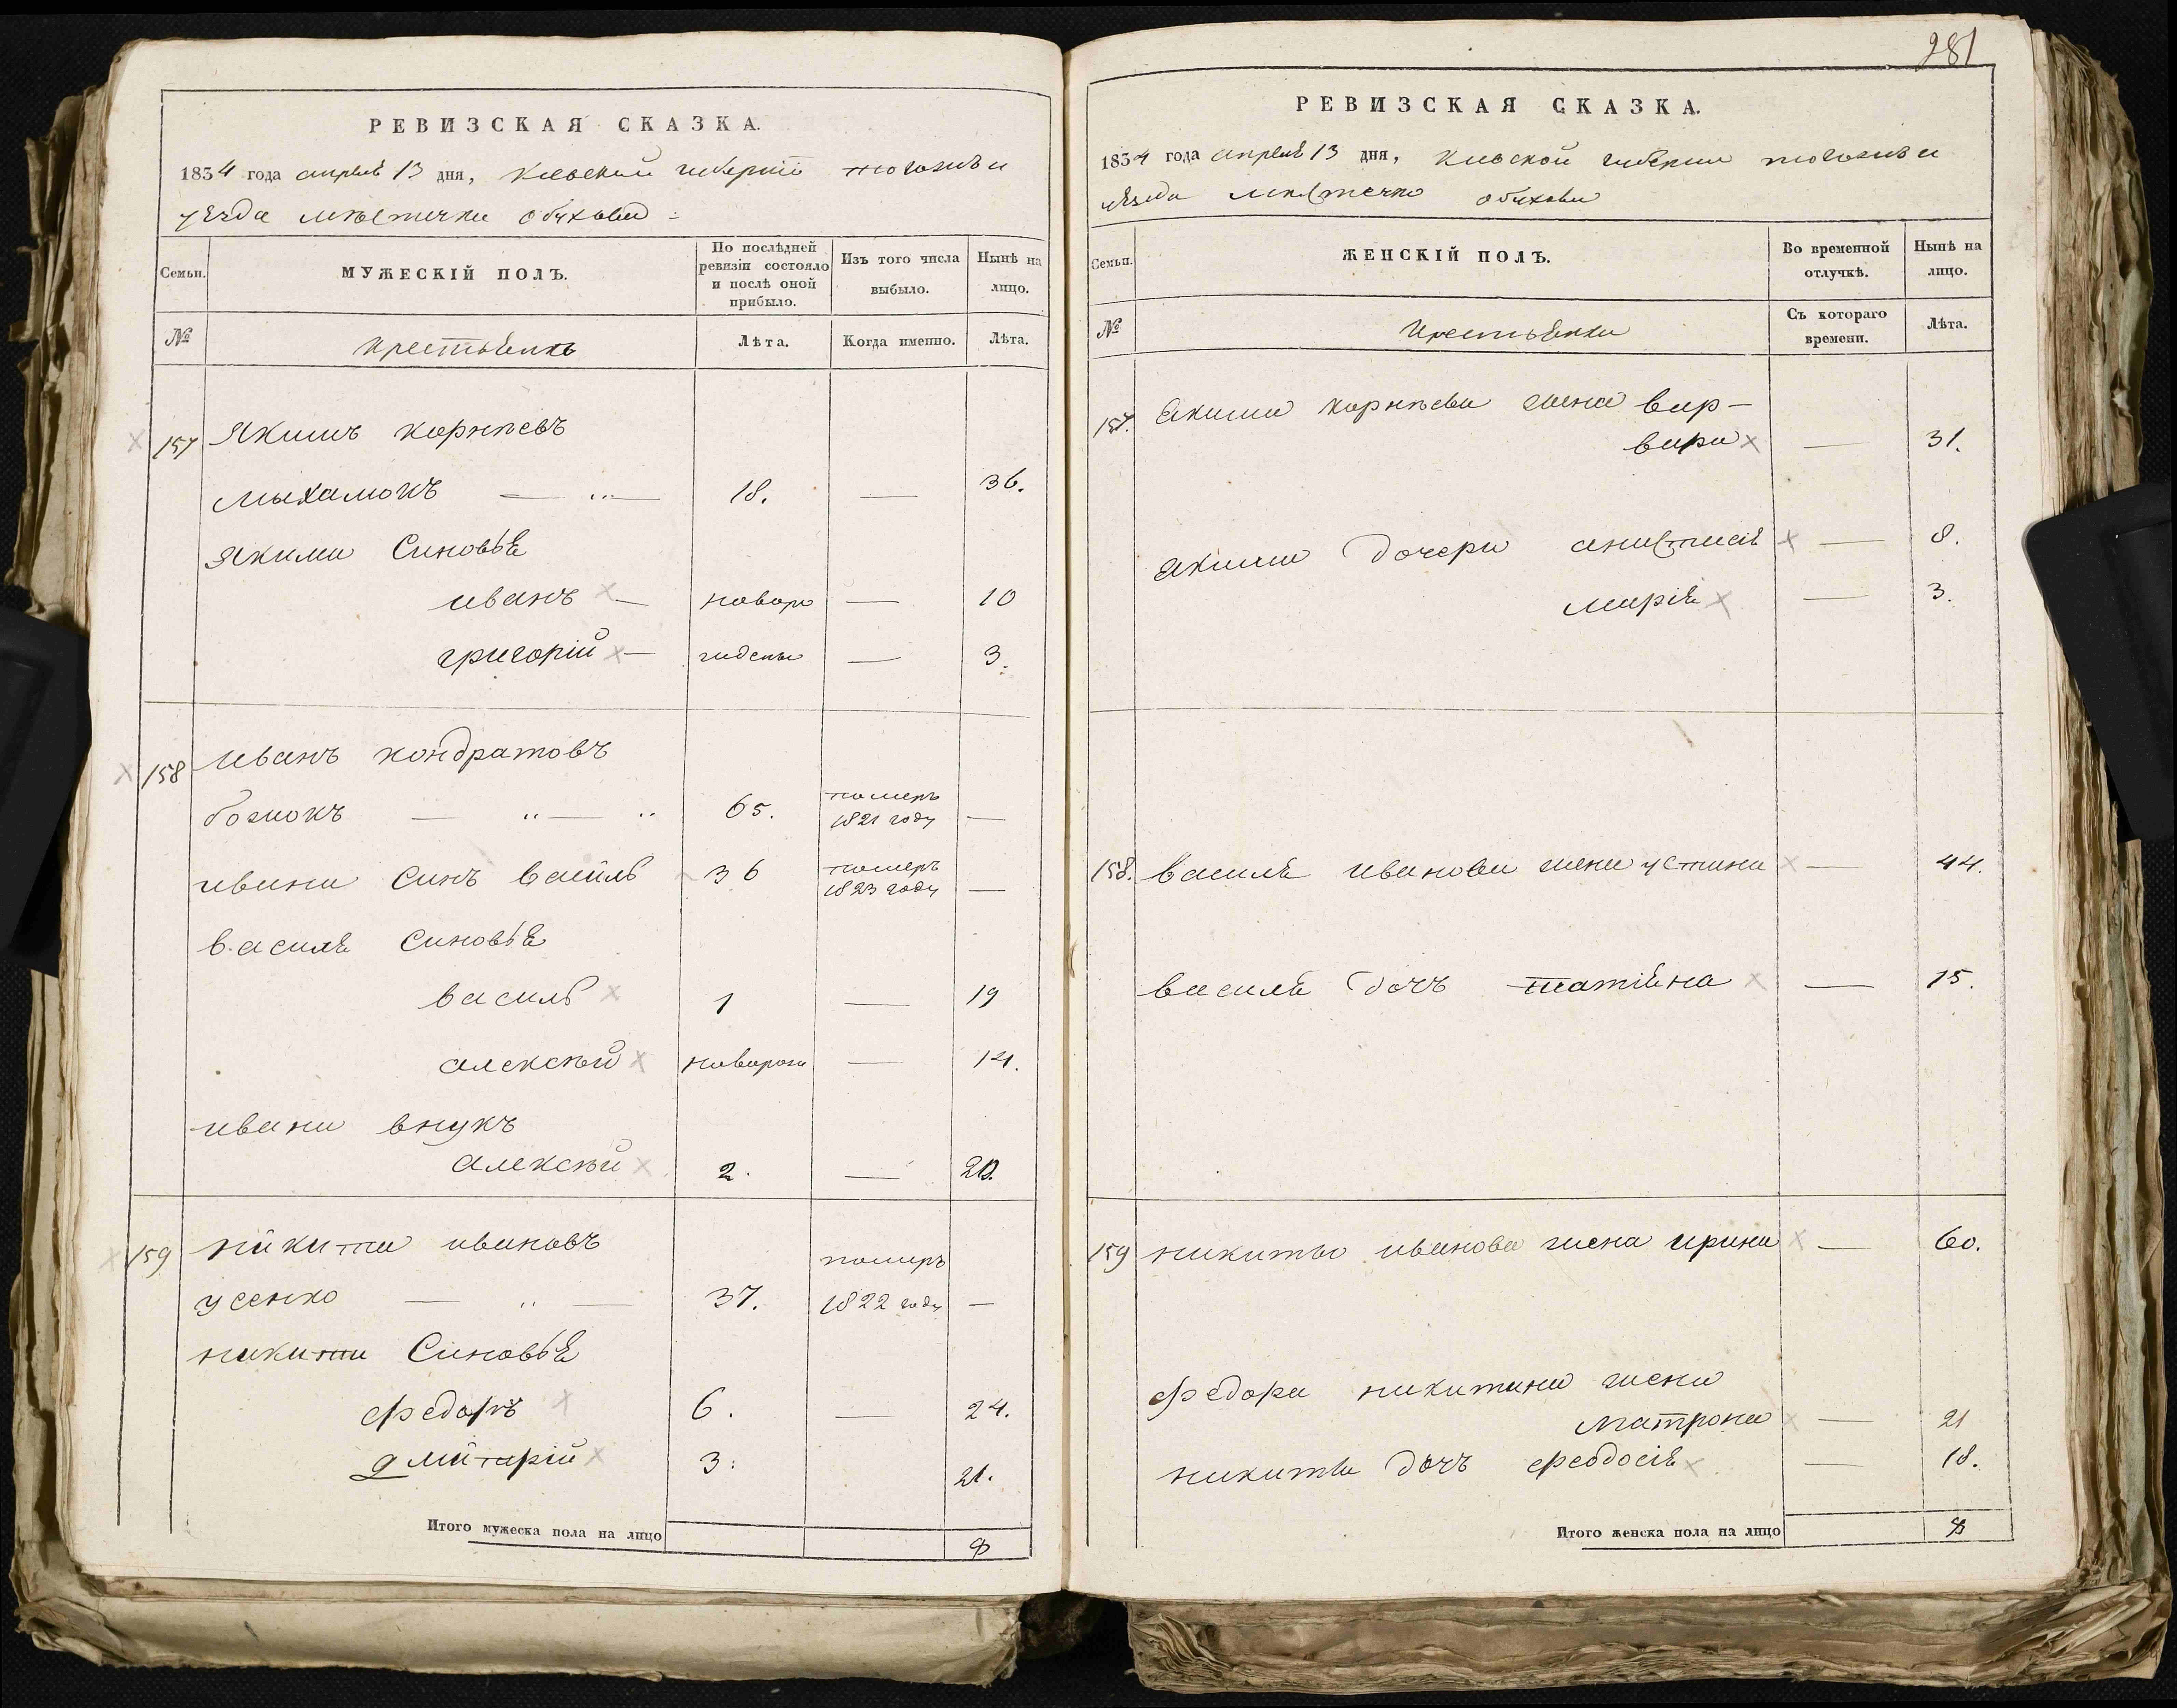 РЕВИЗСКАЯ СКАЗКА.
1834 года апреля 13 дня, Киевской губернiи тогожъ и
уезда местечка обухова
Семьи.
МУЖЕСКІЙ ПОЛЪ.
По послѣдней ревизіи состояло и послѣ оной прибыло.
Изъ того числа выбыло.
Нынѣ на лицо.
№
крестьянъ
Лѣта.
Когда именно.
Лѣта.
157 Якимъ корнѣевъ
михамокъ 18. — 36.
якима синовья
иванъ новоро — 10
григорій жденъ — 3.
158 иванъ кондратовъ
божокъ 65. померъ 1821 году —
ивана синъ василь 36 померъ 1823 году —
василя синовья
василь 1 — 19
алексѣй новорож — 14.
ивана внукъ
алексѣй 2. — 20.
159 никита ивановъ
усенко 37. померъ 1822 году —
никиты синовья
федоръ 6. — 24.
дмитрій 3. 21.
Итого мужеска пола на лицо 8
281
РЕВИЗСКАЯ СКАЗКА.
1834 года апреля 13 дня, Киевской губернии тогожъ и
уезда местечка обухова
Семьи.
ЖЕНСКІЙ ПОЛЪ.
Во временной отлучкѣ.
Нынѣ на лицо.
№
крестьянки
Съ котораго времени.
Лѣта.
157. Якима корнѣева жена вар-
вара — 31.
якима дочери анастасія — 8.
марія — 3.
158. василя иванова жена устина — 44.
василя дочъ татіяна — 15.
159 никиты иванова жена ирина — 60.
федора никитина жена
матрона — 21
никиты дочъ феодосія — 18.
Итого женска пола на лицо 8